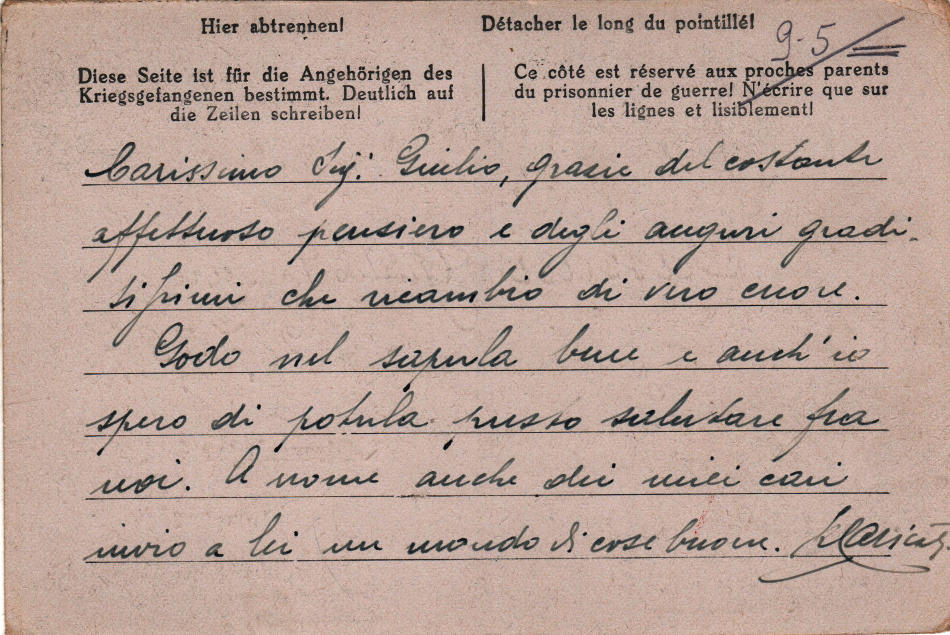 Hier abtrennen!
Détacher le long du pointillé!
9-5
Diese Seite ist für die Angehörigen des
Kriegsgefangenen bestimmt. Deutlich auf
die Zeilen schreiben!
Ce côté est réservé aux proches parents
du prisonnier de guerre! N'écrire que sur
les lignes et lisiblement!
Carissimo Sig. Giulio, grazie del costante
affettuoso pensiero e degli auguri gradi-
tissimi che ricambio di vero cuore.
Godo nel saperla bene e anch'io
spero di poterla presto salutare fra
noi. A nome anche dei miei cari
invio a lei un mondo di cose buone.